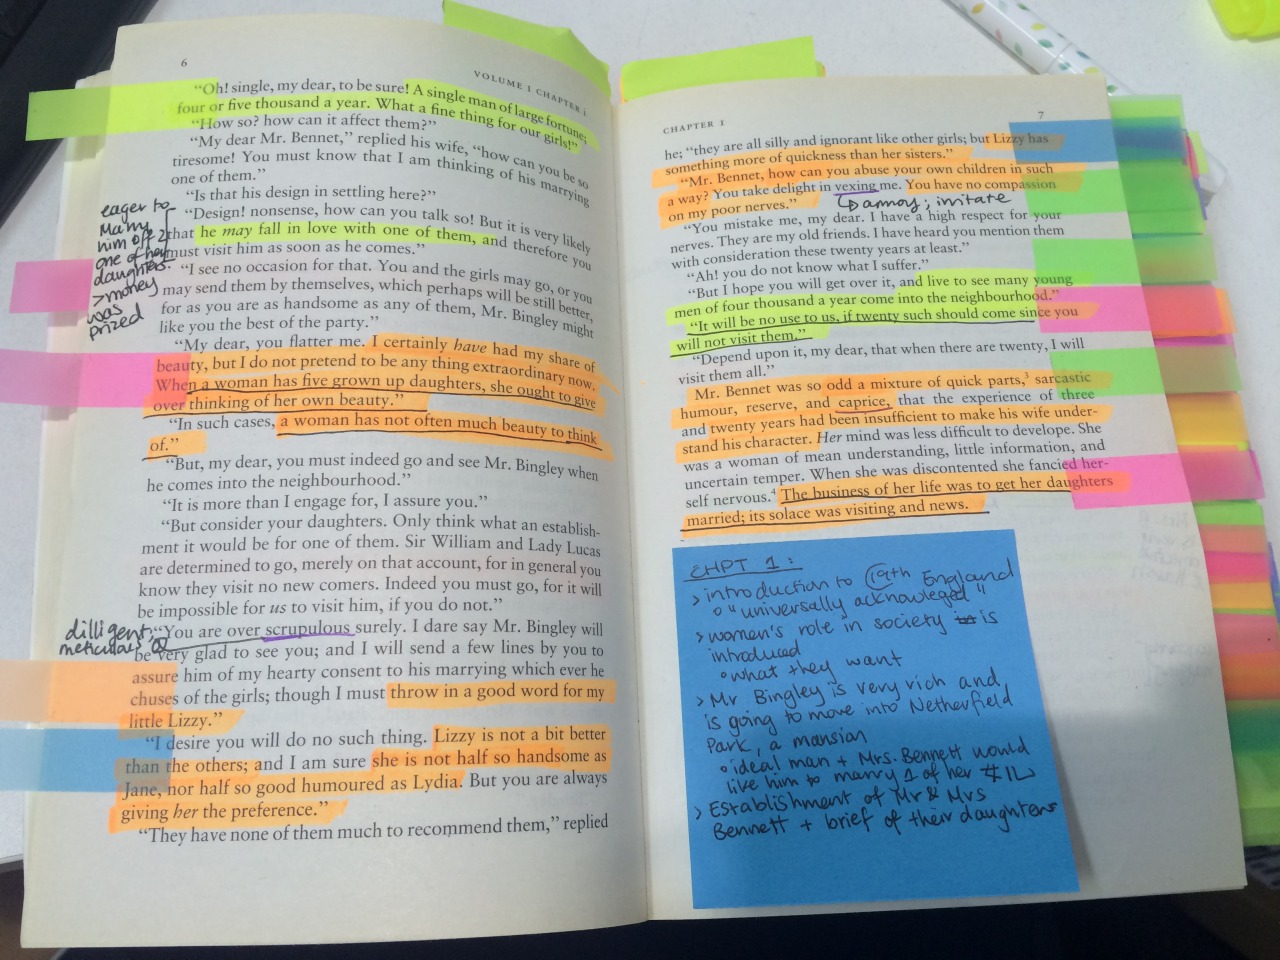 6
VOLUME I CHAPTER I
“Oh! single, my dear, to be sure! A single man of large fortune;
four or five thousand a year. What a fine thing for our girls!”
“How so? how can it affect them?”
“My dear Mr. Bennet,” replied his wife, “how can you be so
tiresome! You must know that I am thinking of his marrying
one of them.”
“Is that his design in settling here?”
“Design! nonsense, how can you talk so! But it is very likely
that he may fall in love with one of them, and therefore you
must visit him as soon as he comes.”
“I see no occasion for that. You and the girls may go, or you
may send them by themselves, which perhaps will be still better,
for as you are as handsome as any of them, Mr. Bingley might
like you the best of the party.”
“My dear, you flatter me. I certainly have had my share of
beauty, but I do not pretend to be any thing extraordinary now.
When a woman has five grown up daughters, she ought to give
over thinking of her own beauty.”
“In such cases, a woman has not often much beauty to think
of.”
“But, my dear, you must indeed go and see Mr. Bingley when
he comes into the neighbourhood.”
“It is more than I engage for, I assure you.”
“But consider your daughters. Only think what an establish-
ment it would be for one of them. Sir William and Lady Lucas
are determined to go, merely on that account, for in general you
know they visit no new comers. Indeed you must go, for it will
be impossible for us to visit him, if you do not.”
“You are over scrupulous surely. I dare say Mr. Bingley will
be very glad to see you; and I will send a few lines by you to
assure him of my hearty consent to his marrying which ever he
chuses of the girls; though I must throw in a good word for my
little Lizzy.”
“I desire you will do no such thing. Lizzy is not a bit better
than the others; and I am sure she is not half so handsome as
Jane, nor half so good humoured as Lydia. But you are always
giving her the preference.”
“They have none of them much to recommend them,” replied
eager to
marry
him off 2
one of her
daughters.
>money
was
prized
dilligent;
meticulous
CHAPTER I
7
he; “they are all silly and ignorant like other girls; but Lizzy has
something more of quickness than her sisters.”
“Mr. Bennet, how can you abuse your own children in such
a way? You take delight in vexing me. You have no compassion
on my poor nerves.”
annoy; irritate
“You mistake me, my dear. I have a high respect for your
nerves. They are my old friends. I have heard you mention them
with consideration these twenty years at least.”
“Ah! you do not know what I suffer.”
“But I hope you will get over it, and live to see many young
men of four thousand a year come into the neighbourhood.”
“It will be no use to us, if twenty such should come since you
will not visit them.”
“Depend upon it, my dear, that when there are twenty, I will
visit them all.”
Mr. Bennet was so odd a mixture of quick parts,3 sarcastic
humour, reserve, and caprice, that the experience of three
and twenty years had been insufficient to make his wife under-
stand his character. Her mind was less difficult to develope. She
was a woman of mean understanding, little information, and
uncertain temper. When she was discontented she fancied her-
self nervous.4 The business of her life was to get her daughters
married; its solace was visiting and news.
CHPT 1:
> introduction to 19th England
° "universally acknowleged"
> women's role in society is
introduced
° what they want
> Mr Bingley is very rich and
is going to move into Netherfield
Park, a mansion
° ideal man + Mrs. Bennett would
like him to marry 1 of her
> Establishment of Mr & Mrs
Bennett + brief of their daughters